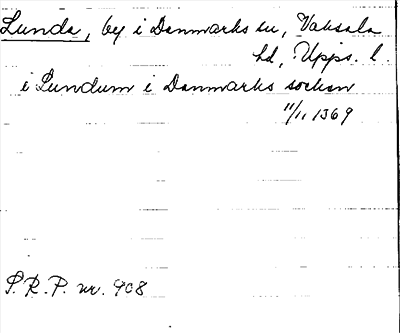 Lunda, by i Danmarks sn, Vaksala
hd, Upps. l.
i Lundum i Danmarks socken
11/11 1369
S.R.P. nr. 908